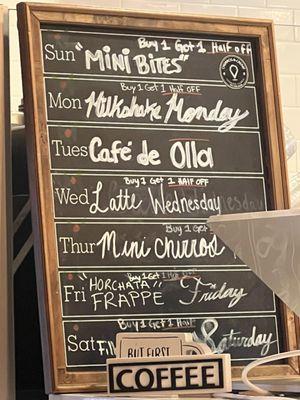 Buy 1 Get 1 Half off
Sun "MINI BITES"
Buy 1 Get 1 Half OFF
Mon Milkshake Monday
Buy 1 Get 1 HALF OFF
Tues Café de Olla
Buy 1 Get 1 HALF OFF
Wed Latte Wednesday
Buy 1 G
Thur Mini Churros
Buy 1 Get 1
Fri "HORCHATA" FRAPPE Friday
Buy 1 Get 1 Half
Sat Saturday
BUT FIRST
COFFEE